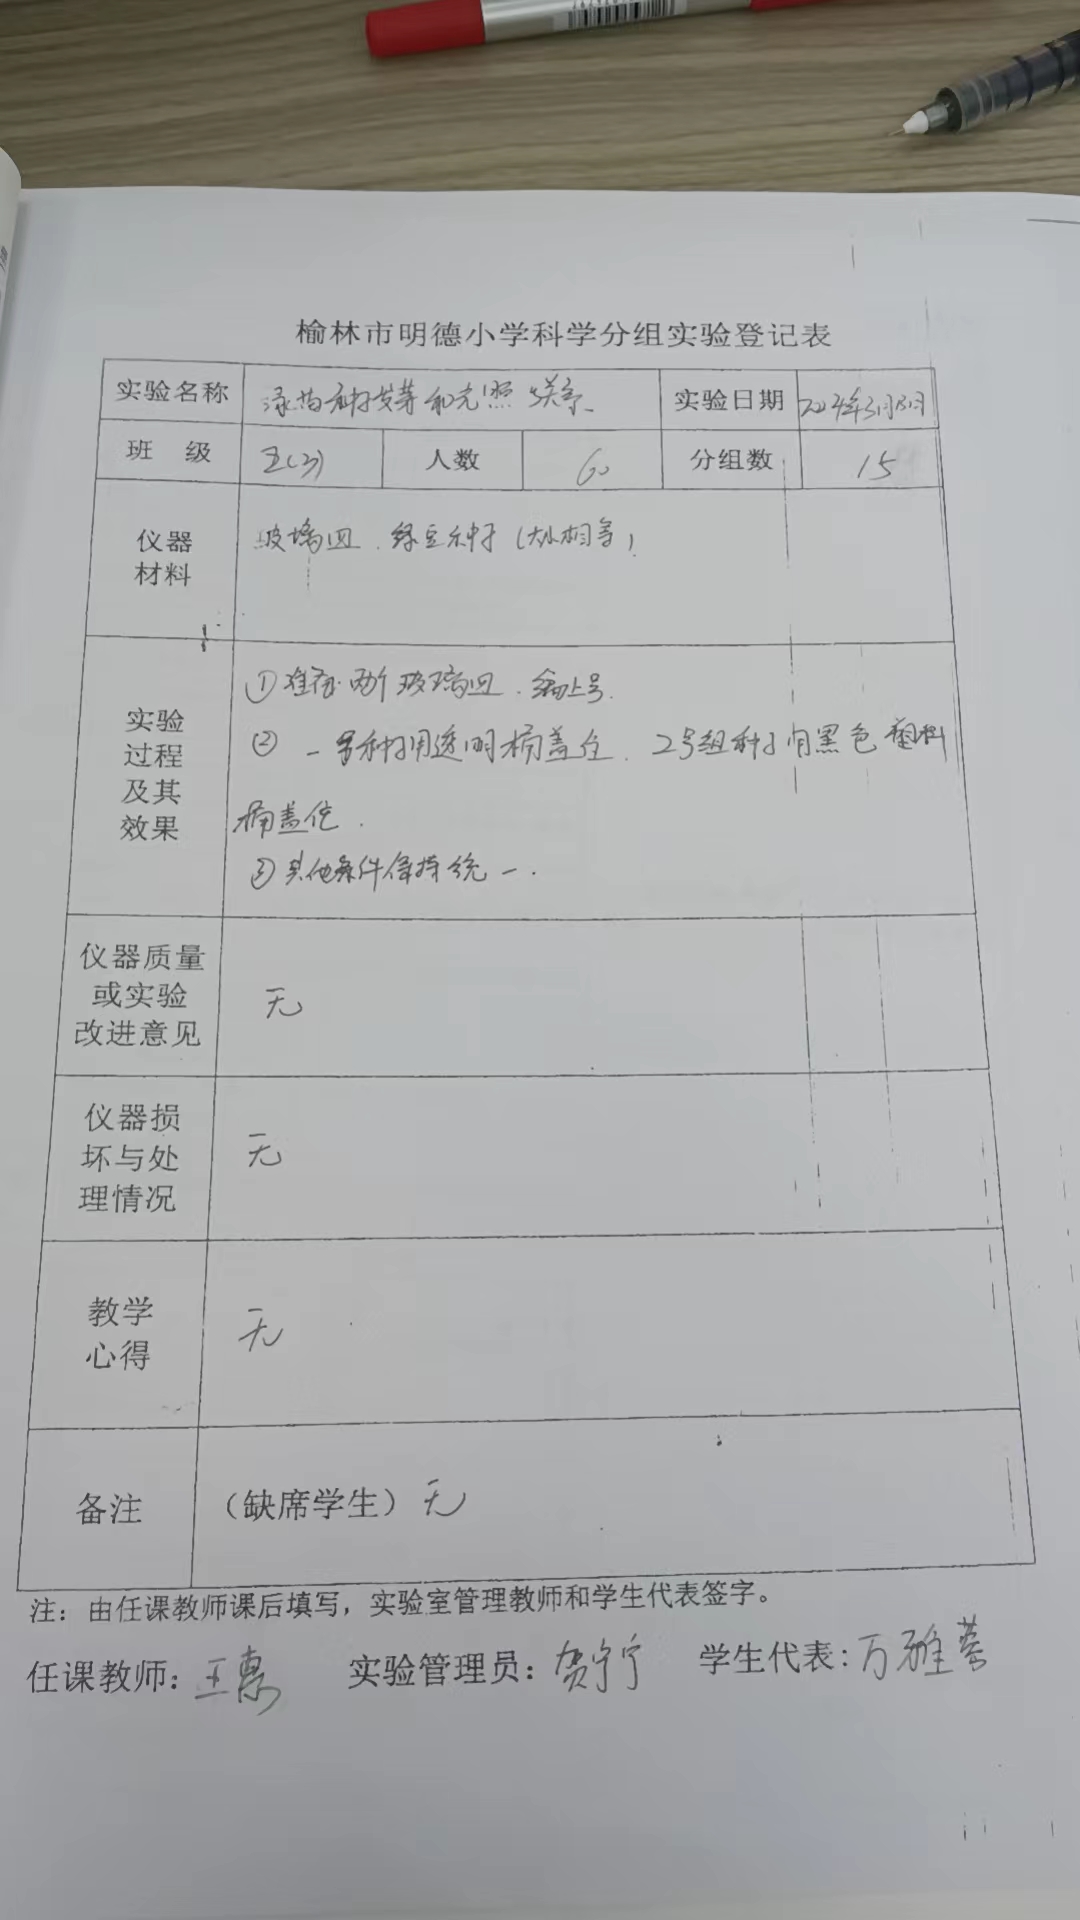 榆林市明德小学科学分组实验登记表
实验名称 种子发芽和光照关系 实验日期 2024年3月13日
班 级 五(3) 人数 60 分组数 15
仪器
材料
玻璃皿、绿豆种子(大小相等)
实验
过程
及其
效果
①准备两个玻璃皿、编上号.
② 一号种子用透明桶盖住、2号组种子用黑色塑料
桶盖住.
③其他条件保持统一.
仪器质量
或实验
改进意见
无
仪器损
坏与处
理情况
无
教学
心得
无
备注 (缺席学生)无
注：由任课教师课后填写，实验室管理教师和学生代表签字。
任课教师:王惠 实验管理员:贺宁宁 学生代表:万雅蓉